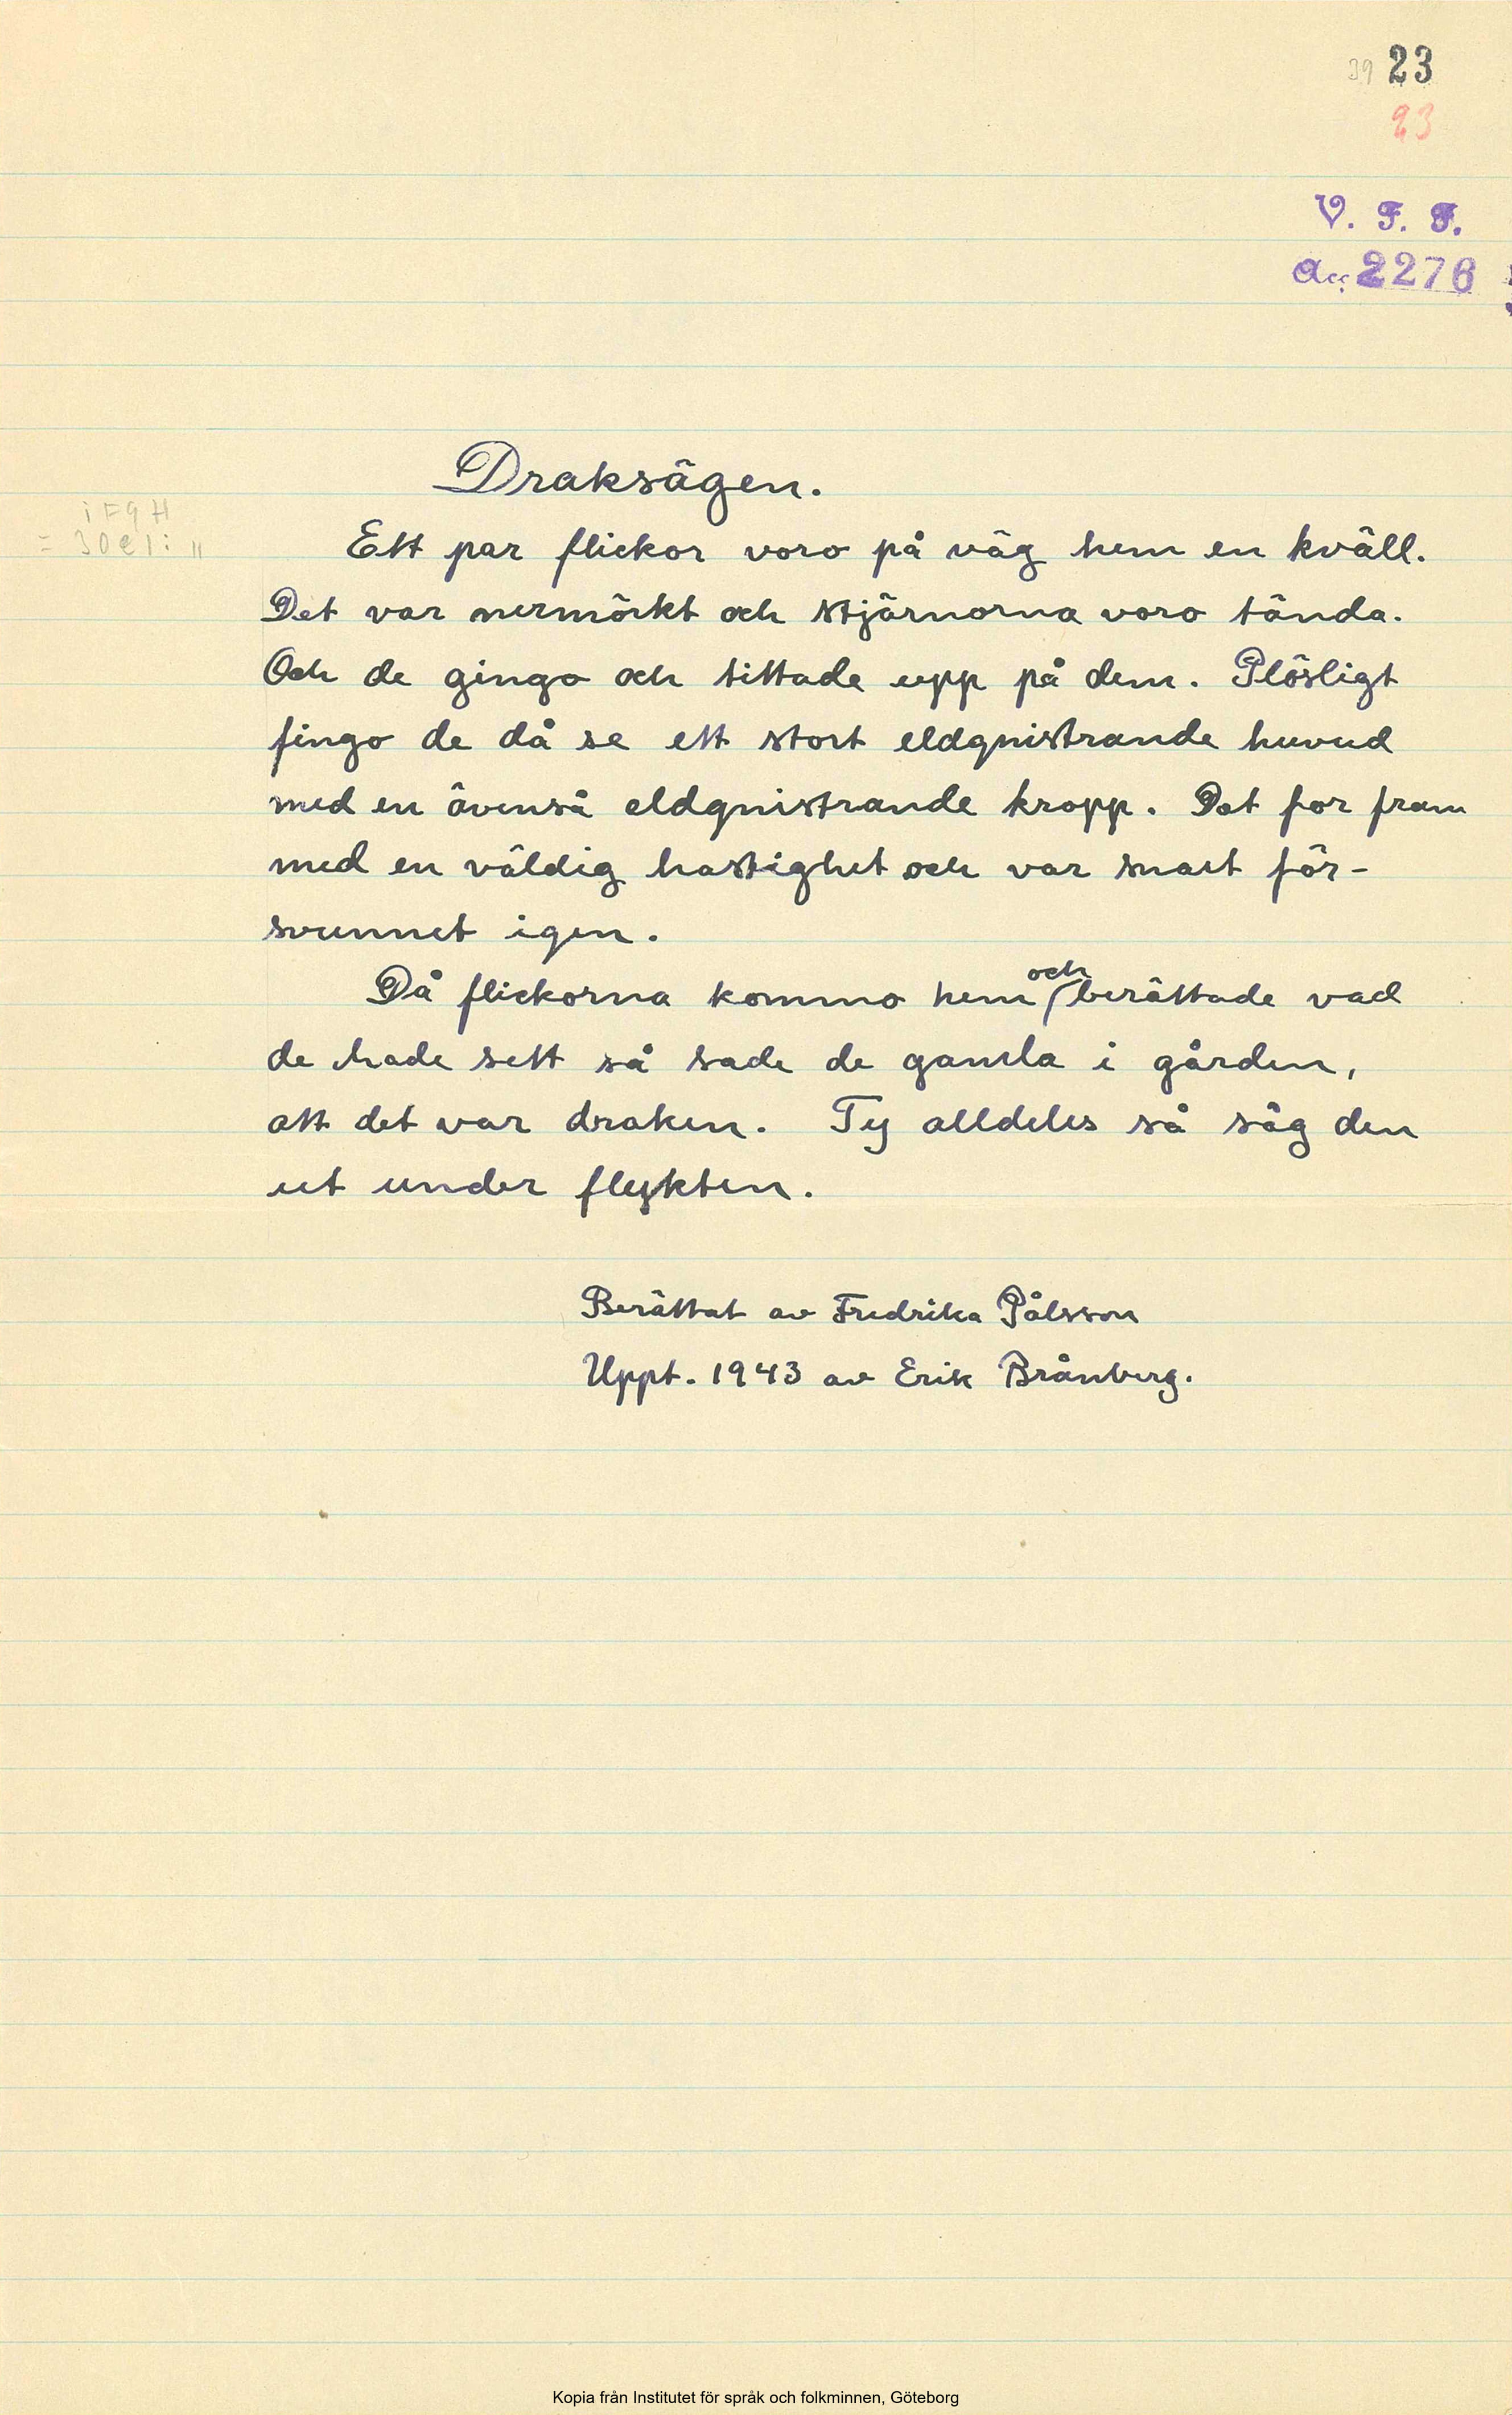 39 23
23
V. F. F.
Acc. 2276
Draksägen.
i F 9 H
Ett par flickor voro på väg hem en kväll.
Det var nermörkt och stjärnorna voro tända.
Och de gingo och tittade upp på dem. Plösligt
fingo de då se ett stort eldgnistrande huvud
med en ävenså eldgnistrande kropp. Det for fram
med en väldig hastighet och var snart för-
svunnet igen.
Då flickorna kommo hem och berättade vad
de hade sett så sade de gamla i gården,
att det var draken. Ty alldeles så såg den
ut under flykten.
Berättat av Fredrika Pålsson
Uppt. 1943 av Erik Brånberg.
Kopia från Institutet för språk och folkminnen, Göteborg